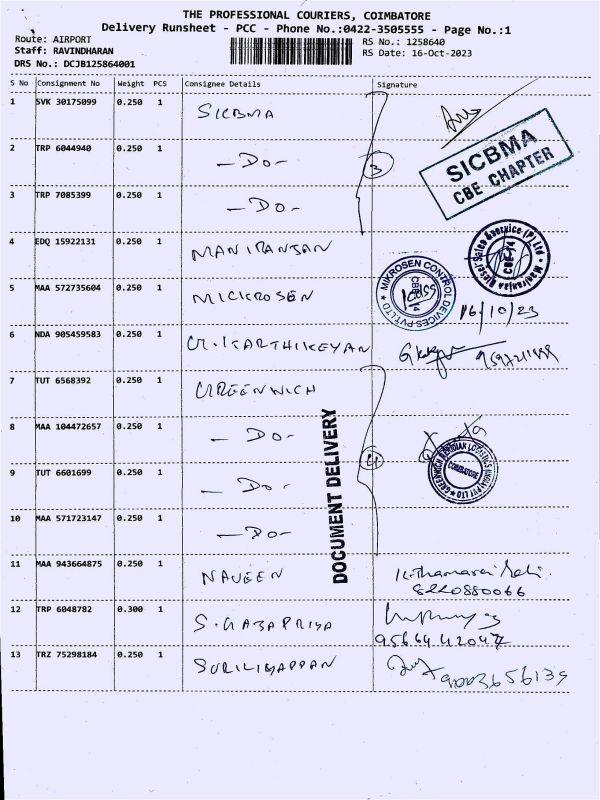 THE PROFESSIONAL COURIERS, COIMBATORE
Delivery Runsheet - PCC - Phone No.:0422-3505555 - Page No.:1
Route: AIRPORT
RS No.: 1258640
Staff: RAVINDHARAN
RS Date: 16-Oct-2023
DRS No.: DCJB125864001
S No Consignment No Weight PCS Consignee Details Signature
1 SVK 30175099 0.250 1 SICBMA
2 TRP 6044940 0.250 1 -DO- 3
SICBMA
CBE CHAPTER
3 TRP 7085399 0.250 1 -DO-
4 EDQ 15922131 0.250 1 MANIRANJAN
5 MAA 572735604 0.250 1 MICKROSEN
MIKROSEN CONTROL DEVICES PVT LTD
16/10/23
6 NDA 905459583 0.250 1 G.KARTHIKEYAN
7 TUT 6568392 0.250 1 GREENWICH
8 MAA 104472657 0.250 1 -DO-
DOCUMENT DELIVERY
9 TUT 6601699 0.250 1 -DO-
COIMBATORE
10 MAA 571723147 0.250 1 -DO-
11 MAA 943664875 0.250 1 NAVEEN
8220880066
12 TRP 6048782 0.300 1 S.GAJAPRIYA
9566442047
13 TRZ 75298184 0.250 1 SURILIYAPPAN
9003656139